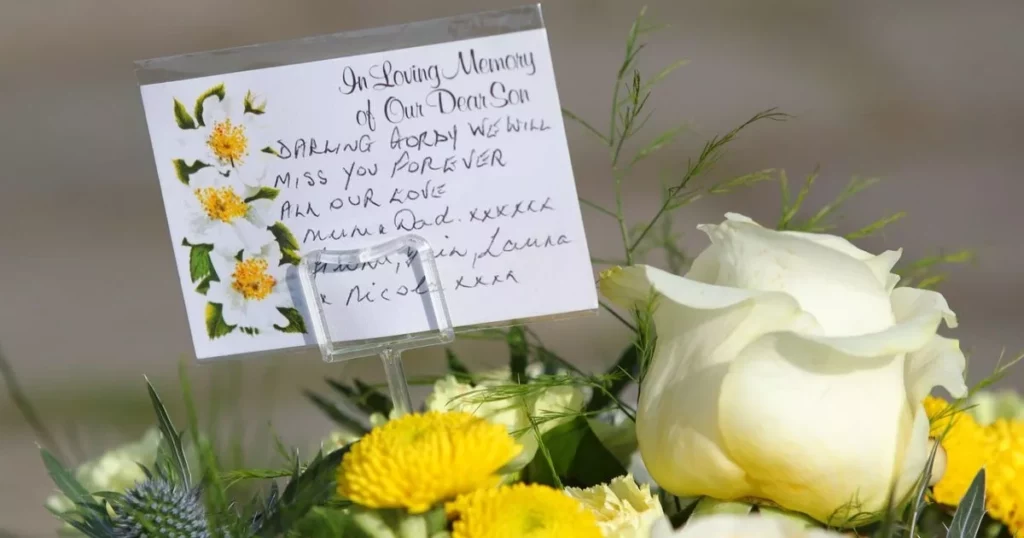 In Loving Memory
of Our Dear Son
DARLING GORDY WE WILL
MISS YOU FOREVER
ALL OUR LOVE
MUM & DAD. XXXXXX
Laura
x Nicola xxxx